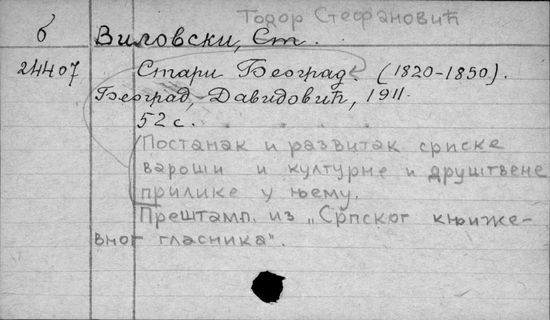 Тодор Стефановић
б
Виловски, Ст.
24407
Стари Београд. (1820-1850).
Београд, Давидовић, 1911.
52 с.
(Постанак и развитак српске
вароши и културне и друштвене
прилике у њему.
Прештамп. из „Српског књиже-
вног гласника".